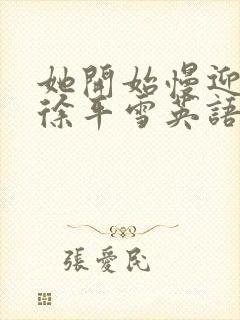 她開始慢迎
徐平雪英語
張愛民